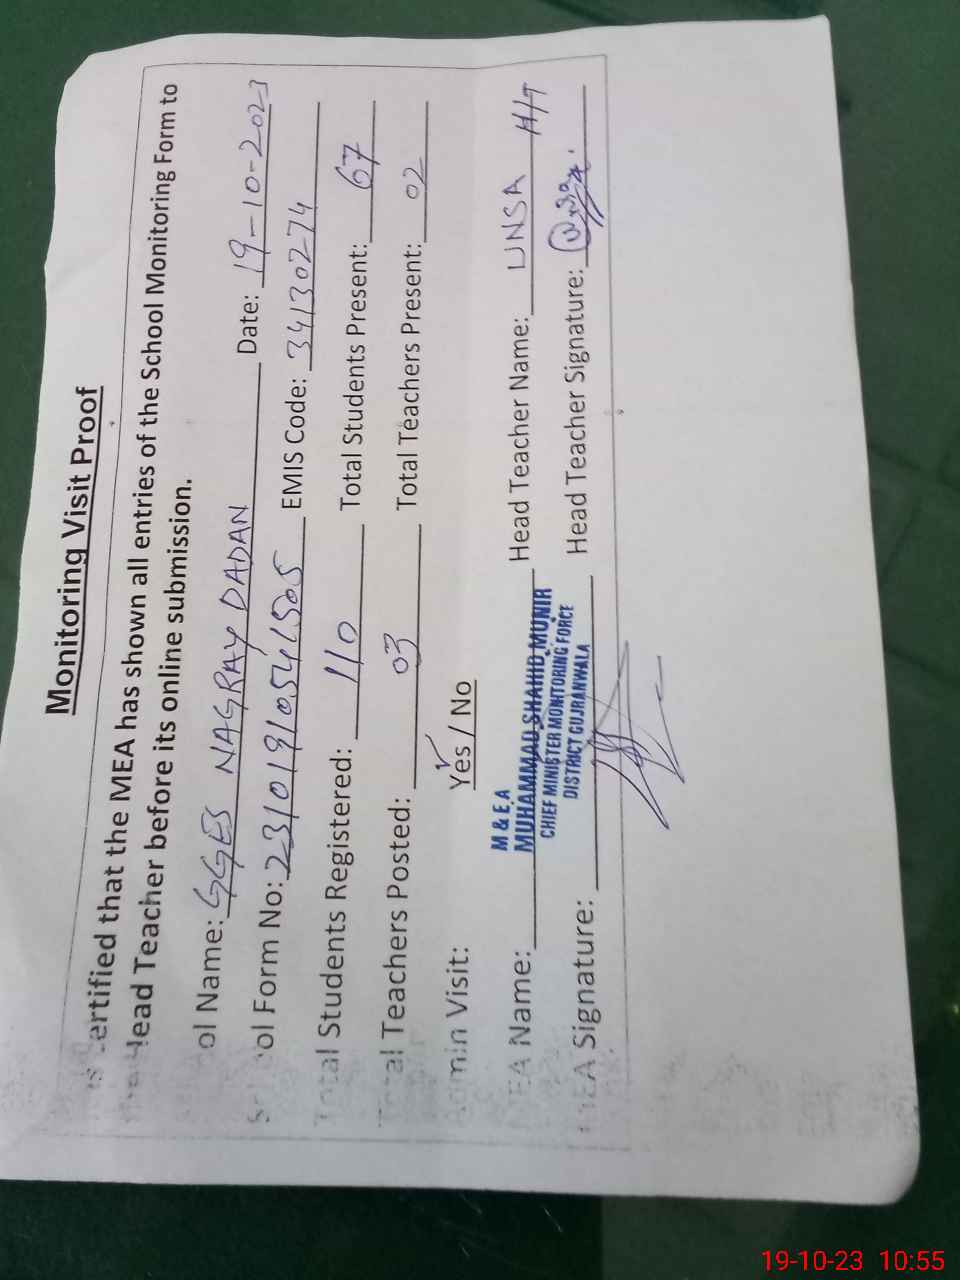 Monitoring Visit Proof
certified that the MEA has shown all entries of the School Monitoring Form to
Head Teacher before its online submission.
ol Name: GGES NAGRAY DADAN Date: 19-10-2023
ol Form No: EMIS Code: 34130274
Total Students Registered: 110 Total Students Present: 67
Total Teachers Posted: 03 Total Teachers Present: 02
Admin Visit: Yes / No
M & E.A
MEA Name: MUHAMMAD SHAHID MUNIR Head Teacher Name: UNSA H/T
CHIEF MINISTER MONITORING FORCE
DISTRICT GUJRANWALA
MEA Signature: Head Teacher Signature:
19-10-23 10:55